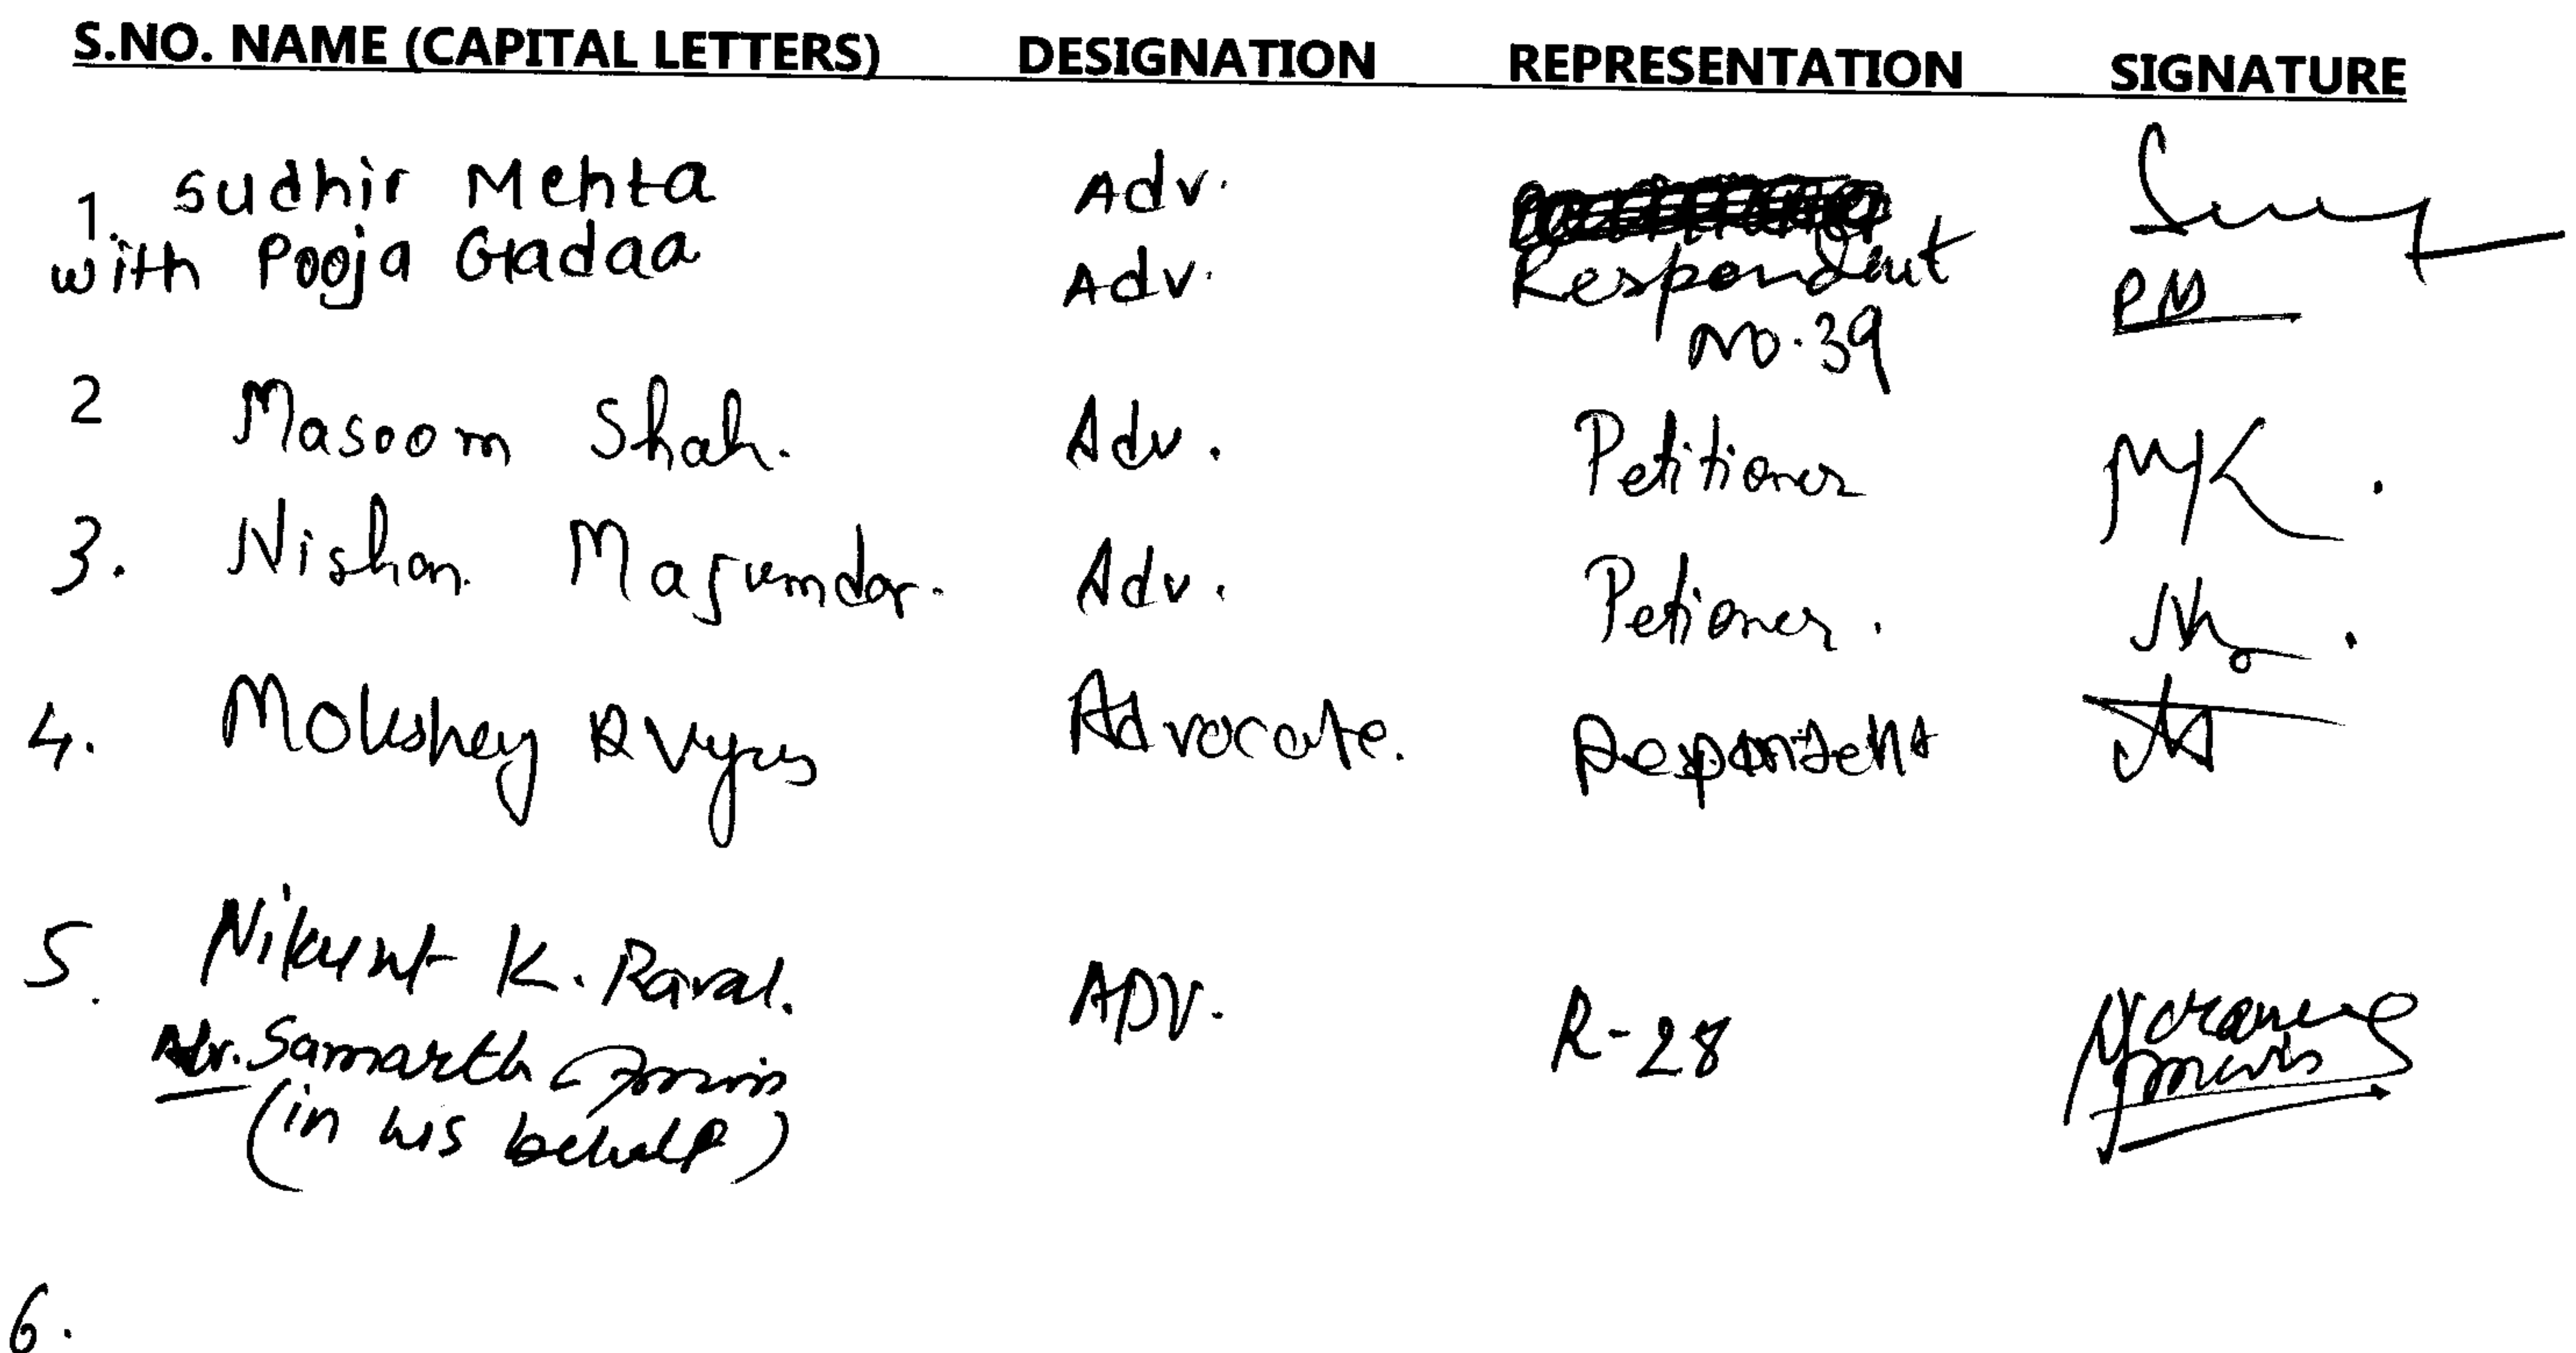 S.NO. NAME (CAPITAL LETTERS) DESIGNATION REPRESENTATION SIGNATURE
1. Sudhir Mehta Adv.
with Pooja Gadaa Adv. Respondent
No. 39
2 Masoom Shah. Adv. Petitioner
3. Nishan Majumdar. Adv. Petioner.
4. Mokshey R Vyas Advocate. Respondent
5. Nikunt K. Raval. ADV. R-28
Adv. Samarth
(in his behalf)
6.